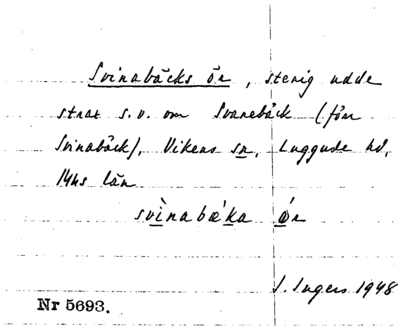 Svinabäcks ör, stenig udde
strax s.v. om Svanebäck (förr
Svinabäck), Vikens sn, Luggude hd,
Mhs län
svìnabæ'ka ǿr
I. Ingers 1948
Nr 5693.